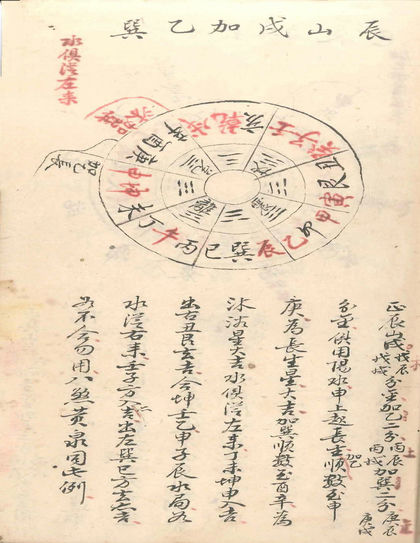 辰山戌加乙巽
水俱從左来
正辰山戌戊辰戊戌分金加乙二分丙辰丙戌加巽二分庚辰庚戌
分金俱用陽水申上起長生順数至申
庚為長生星大吉加巽順数至酉辛為
沐浴星大吉水俱從左来丁未坤申入吉
出右丑艮去吉合坤壬乙申子辰水局為
水從右来壬子方入吉出左巽巳方去吉
若不合勿用八煞黄泉同此例
乾戌
亥
壬子癸
丑艮寅
甲卯
乙辰
巽巳
丙午
丁未
坤申
庚酉辛